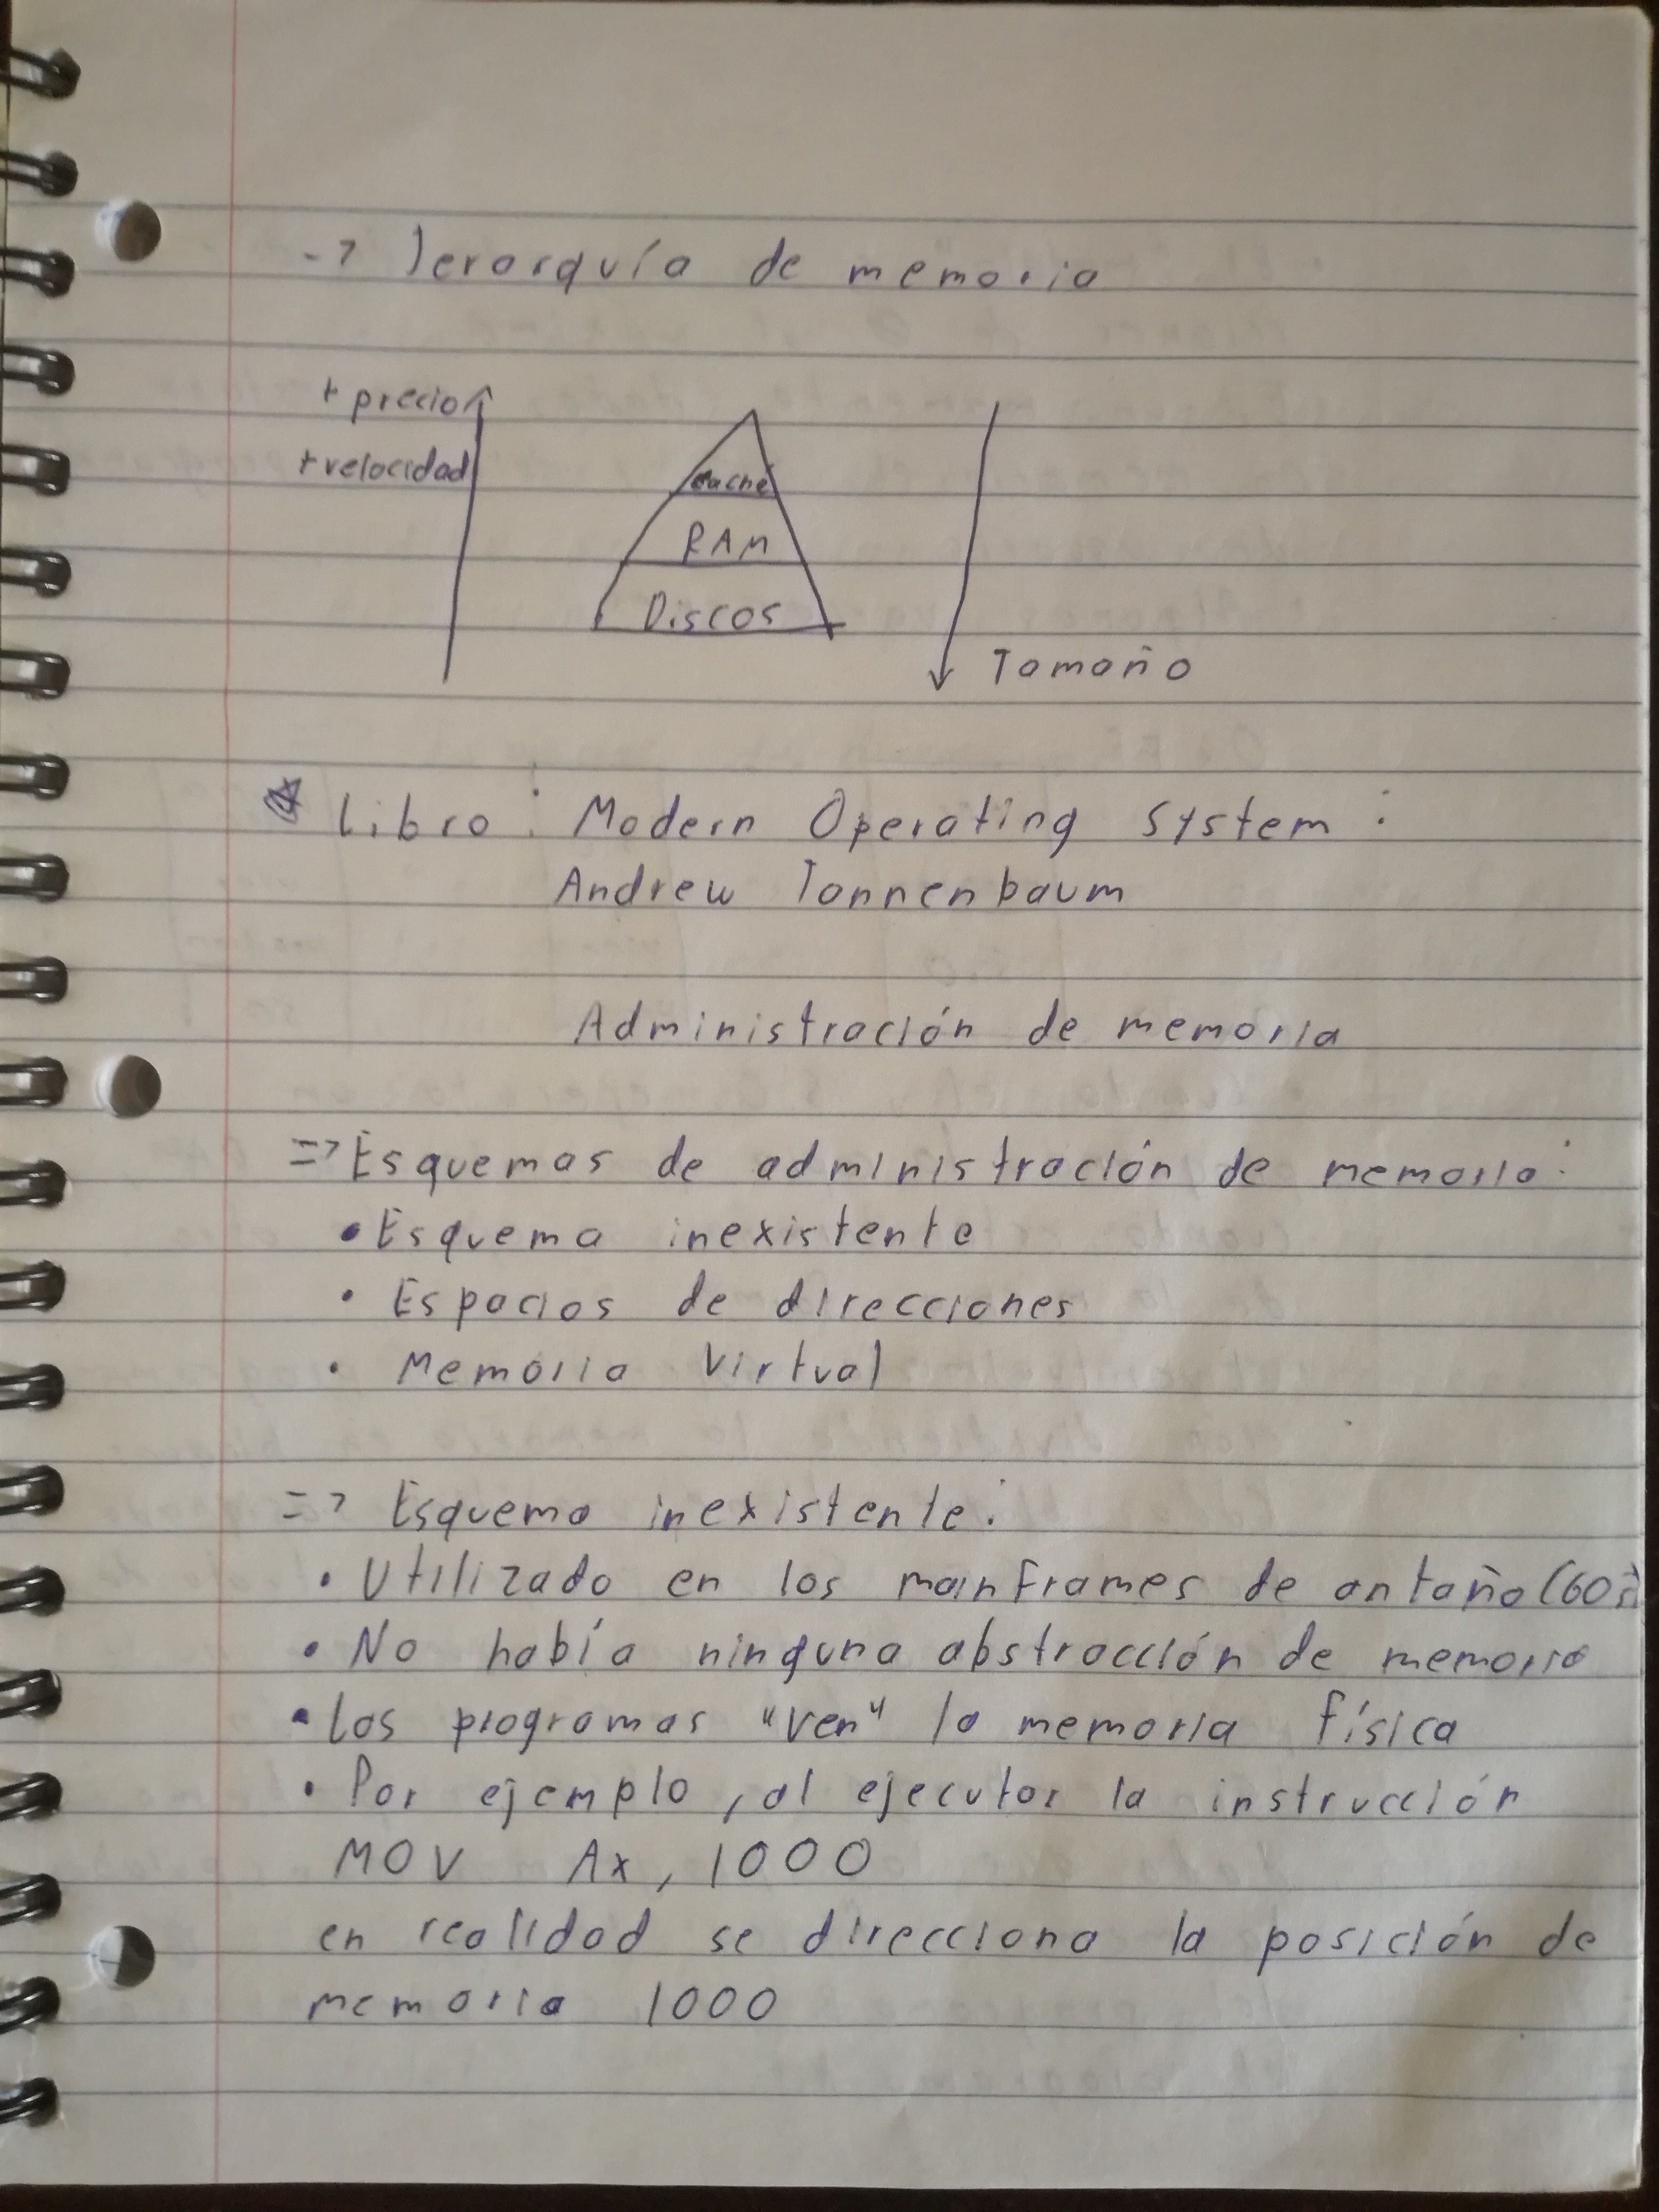 -> Jerarquía de memoria
+ precio
+ velocidad
caché
RAM
Discos
Tamaño
Libro: Modern Operating System:
Andrew Tannenbaum
Administración de memoria
=> Esquemas de administración de memoria:
• Esquema inexistente
• Espacios de direcciones
• Memoria Virtual
=> Esquema inexistente:
• Utilizado en los mainframes de antaño (60s)
• No había ninguna abstracción de memoria
• Los programas "ven" la memoria física
• Por ejemplo, al ejecutar la instrucción
MOV Ax, 1000
en realidad se direcciona la posición de
memoria 1000